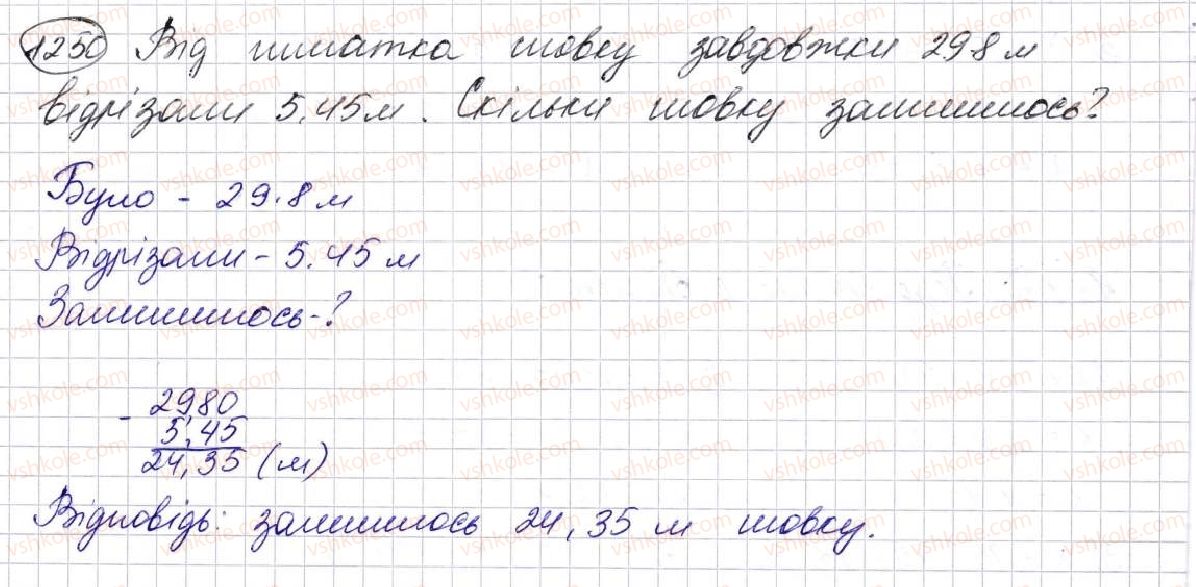 1250 Від шматка шовку завдовжки 298 м
відрізали 5,45 м. Скільки шовку залишилось?
Було - 29.8 м
Відрізали - 5.45 м
Залишилось-?
- 2980
5,45
24,35 (м)
Відповідь: залишилось 24,35 м шовку.